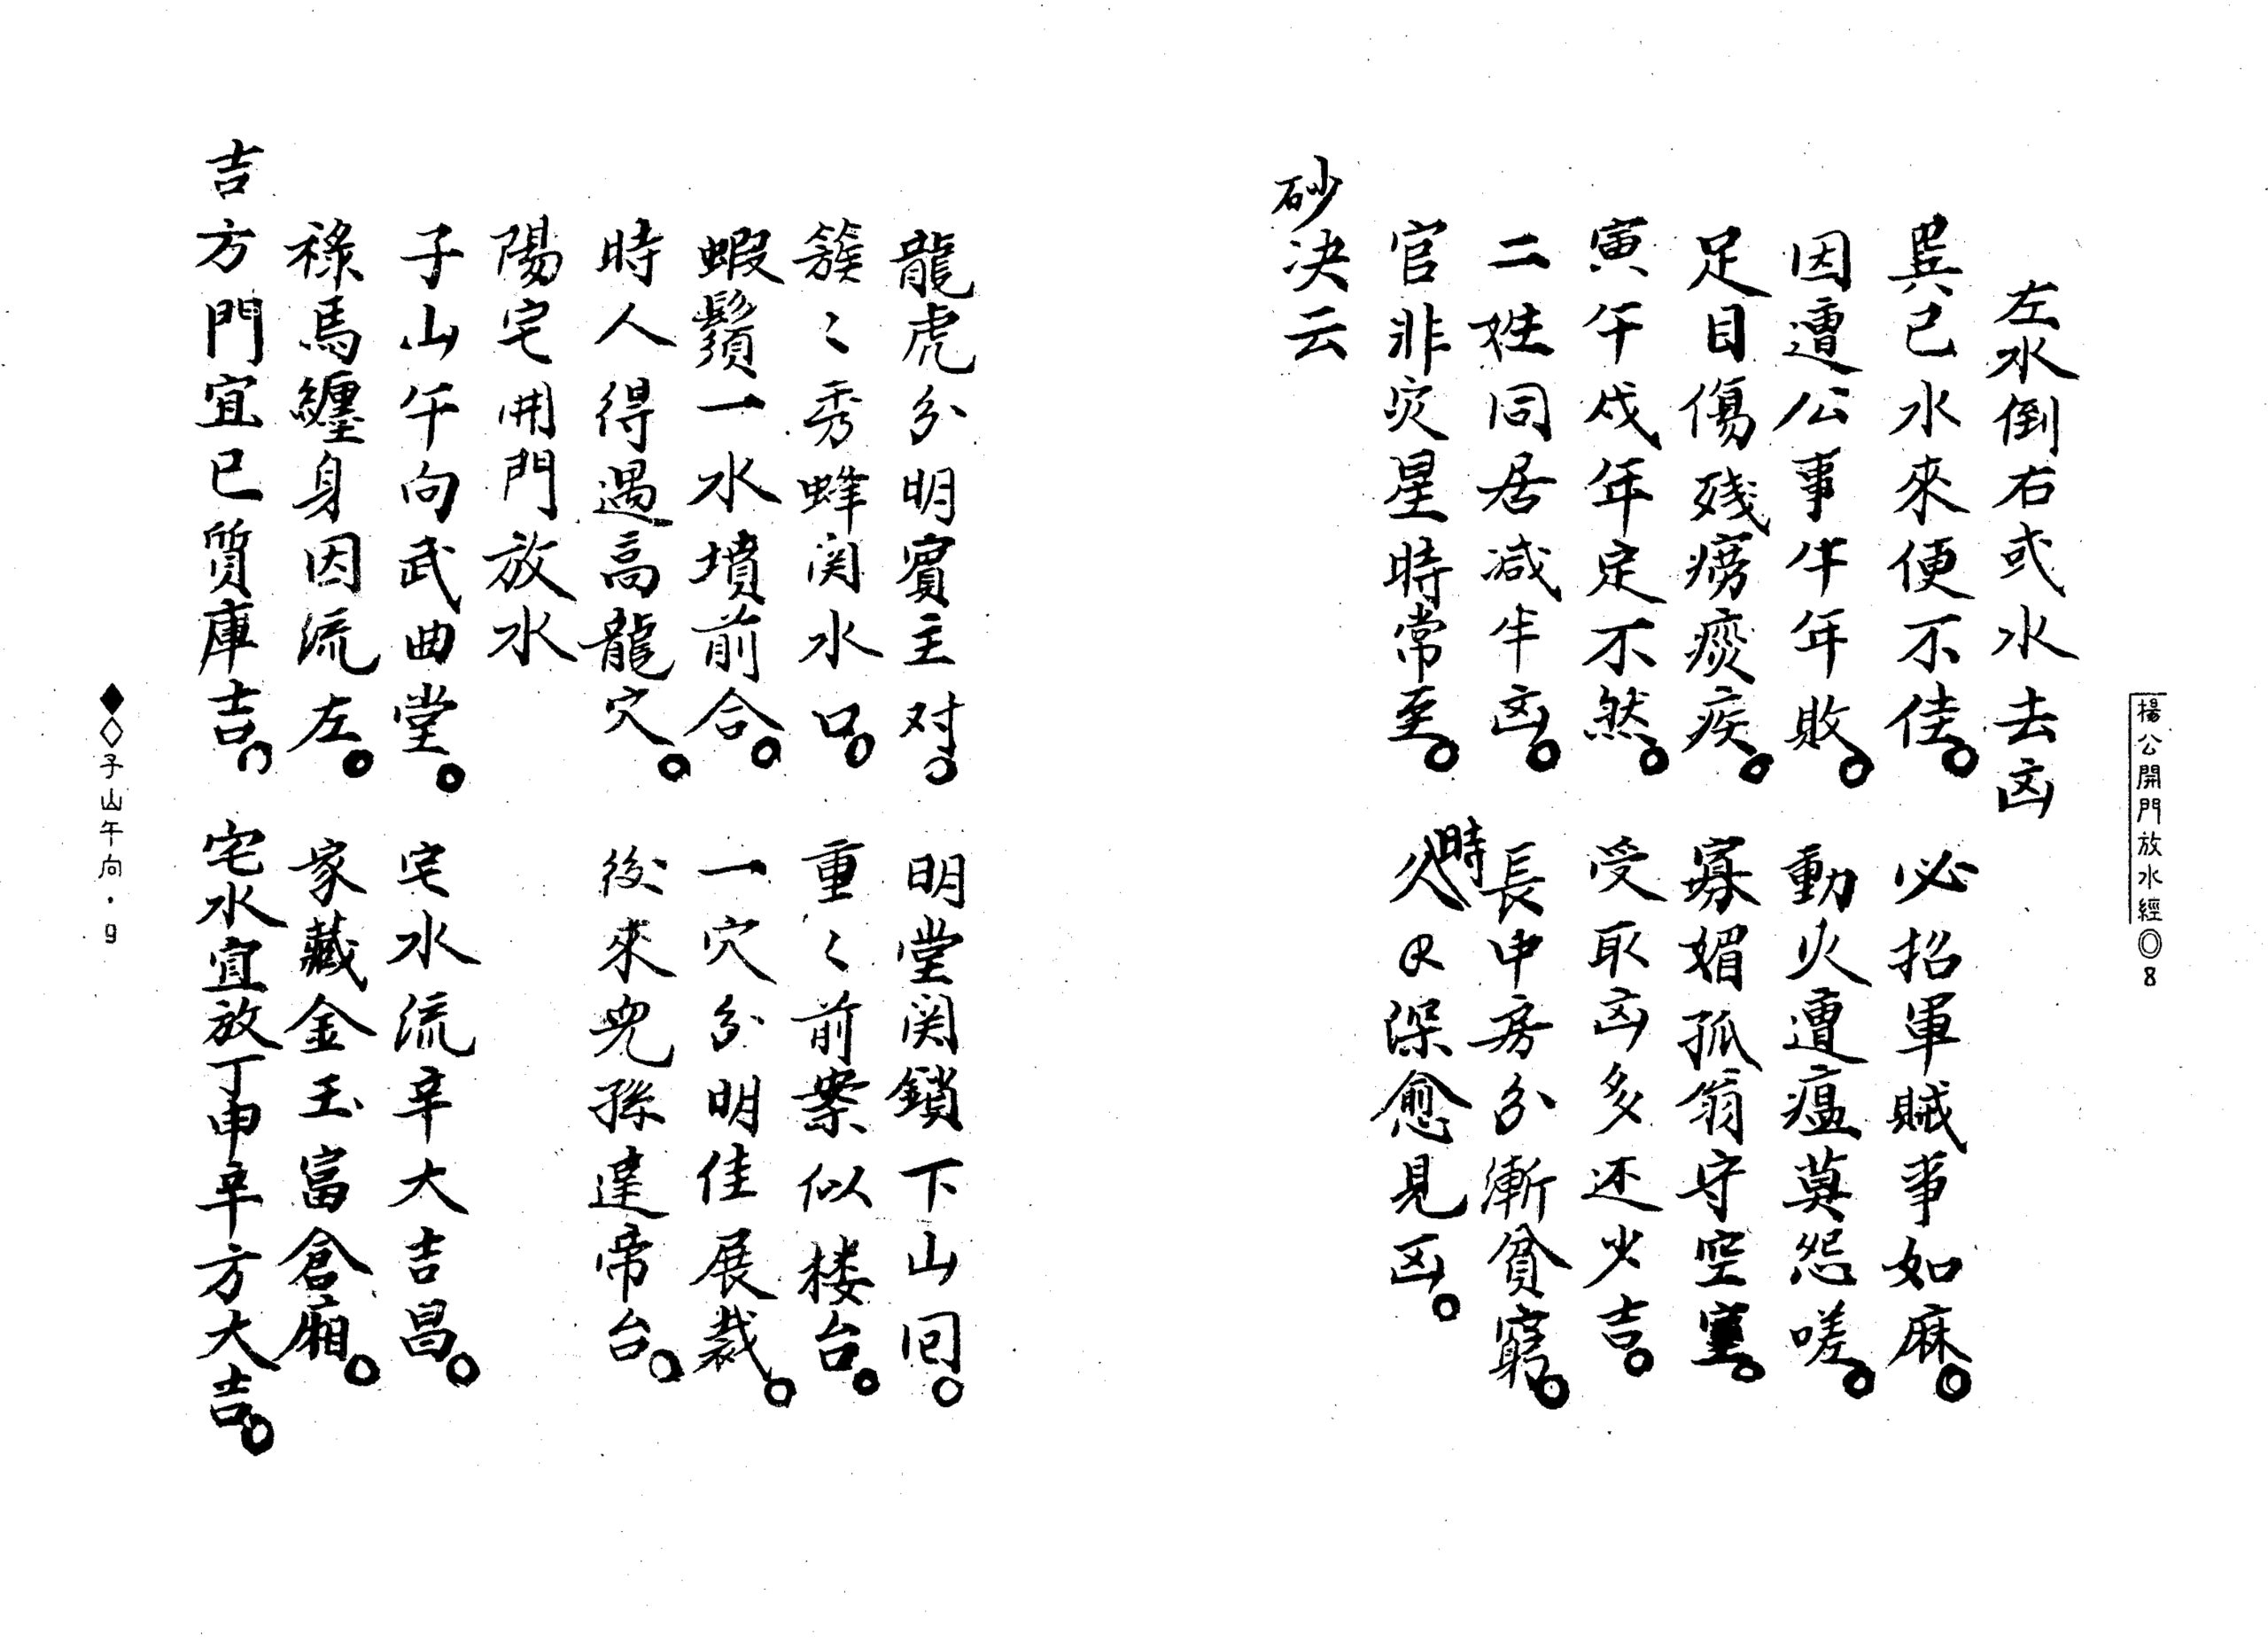 楊公開門放水經◎8
左水倒右或水去凶
巽巳水來便不佳。必招軍賊事如麻。
因遭公事牛年敗。動火遭瘟莫怨嗟。
足目傷殘癆痰疾。寡媚孤翁守空室。
寅午戌年定不然。受取凶多还少吉。
二姓同居減半凶。長中房分漸貧窮。
官非灾星時常至。久時深愈見凶。
砂决云
龍虎分明賓主对。明堂関鎖下山囘。
簇〻秀峰関水口。重〻前案似楼台。
蝦鬚一水墳前合。一穴分明佳展裁。
時人得遇高龍穴。後來兒孫達帝台。
陽宅開門放水
子山午向武曲堂。宅水流辛大吉昌。
祿馬纏身因流左。家藏金玉富倉廂。
吉方門宜巳質庫吉。宅水宜放丁申辛方大吉。
◆◇子山午向・9